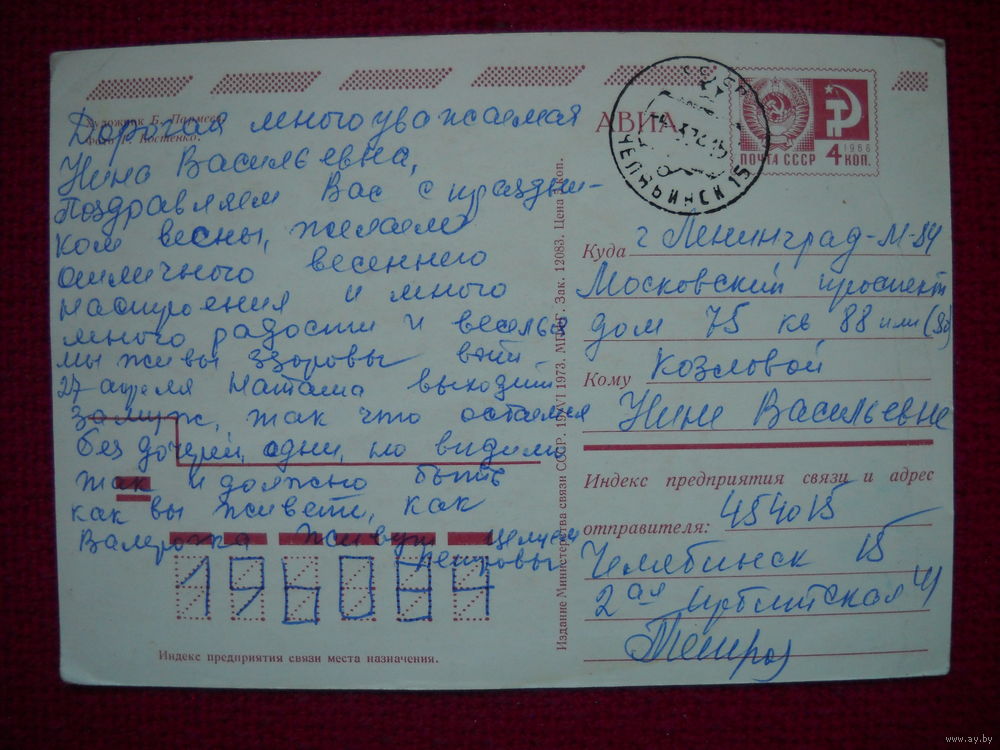 Художник Б. Пармеев
Фото Г. Костенко.
Дорогая многоуважаемая
Нина Васильевна,
Поздравляем Вас с праздни-
ком весны, желаем
отличного весеннего
настроения и много
много радости и веселья
мы живы здоровы вот
27 апреля Наташа выходит
замуж, так что остаемся
без дочерей, одни, но видимо
так и должно быть
как вы живете, как
Валерочка живут целуем
Петровы
196084
Индекс предприятия связи места назначения.
Издание Министерства связи СССР. 19/VI 1973. МПФГ. Зак. 12083. Цена коп.
АВИА
ПОЧТА СССР
1966
4 КОП.
ЧЕЛЯБИНСК 15
Куда г Ленинград-М-84
Московский проспект
дом 75 кв 88 или (90)
Кому Козловой
Нине Васильевне
Индекс предприятия связи и адрес
отправителя: 454015
Челябинск 15
2ая Ирбитская 41